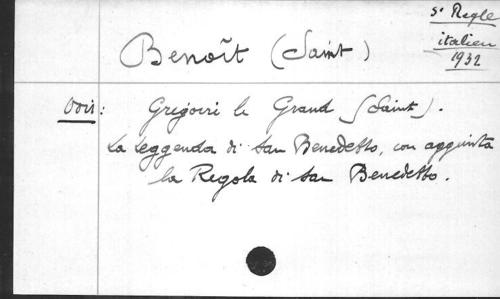 Sa Regle
italien
1932
Benoît (Saint)
Voir: Grégoire le Grand (Saint).
La Leggenda di San Benedetto, con aggiunta
la Regola di San Benedetto.